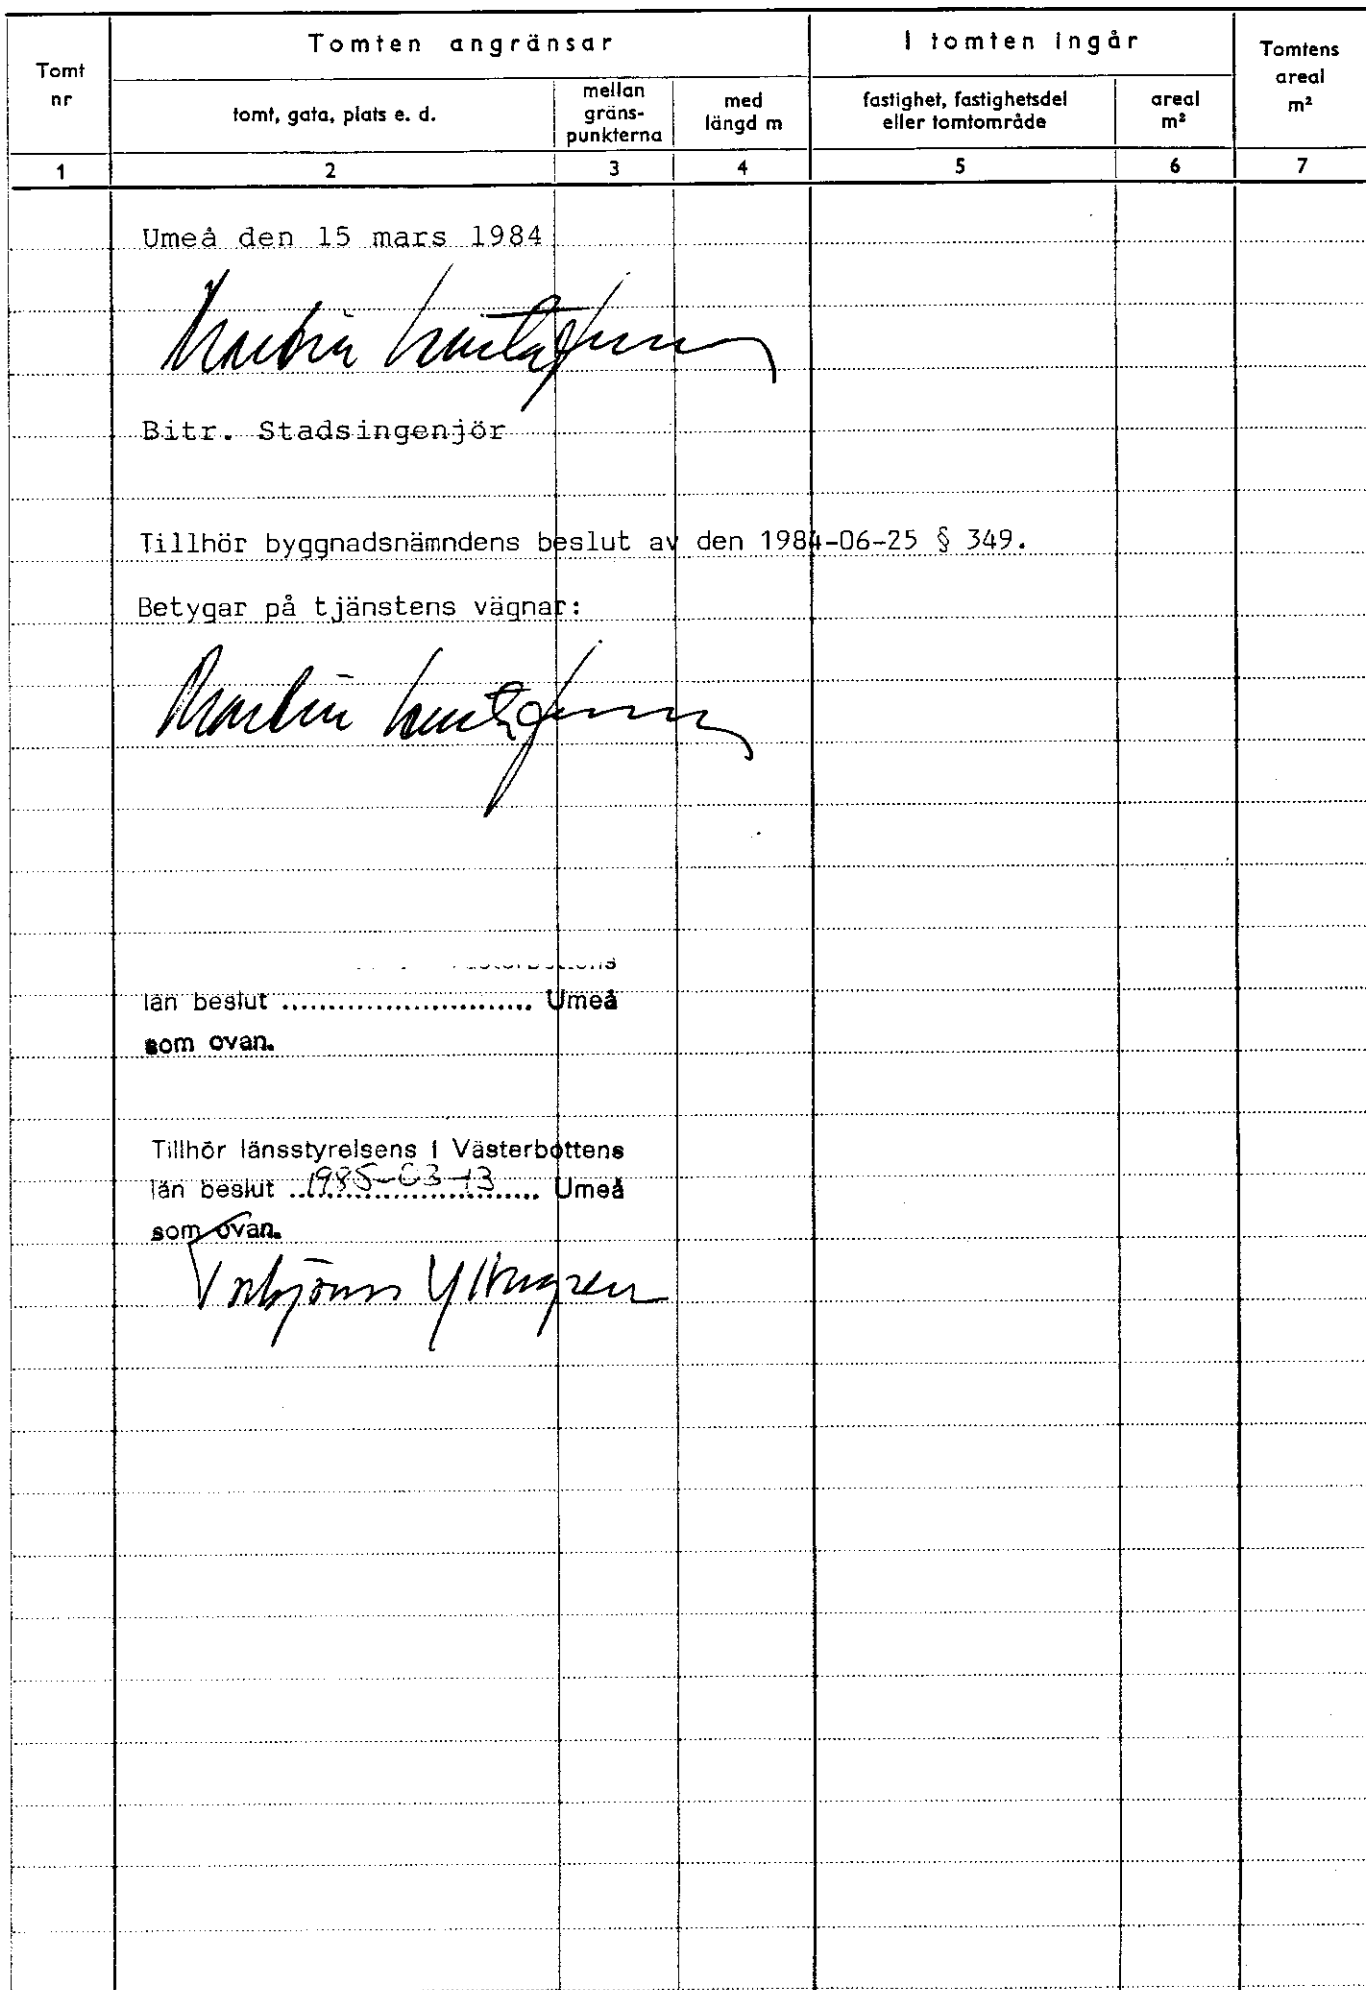 Tomt nr
Tomten angränsar
I tomten ingår
Tomtens areal m²
tomt, gata, plats e. d.
mellan gräns-punkterna
med längd m
fastighet, fastighetsdel eller tomtområde
areal m²
1 2 3 4 5 6 7
Umeå den 15 mars 1984
Martin Gustafsson
Bitr. Stadsingenjör
Tillhör byggnadsnämndens beslut av den 1984-06-25 § 349.
Betygar på tjänstens vägnar:
Martin Gustafsson
län beslut .......................... Umeå
som ovan.
Tillhör länsstyrelsens i Västerbottens
län beslut 1985-03-13 Umeå
som ovan.